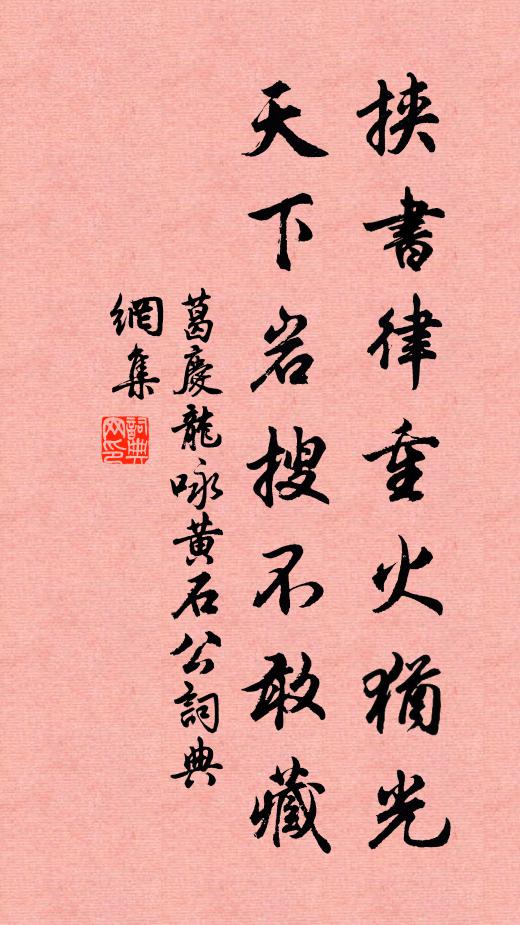 挾書律重火猶光
天下岩搜不敢藏
葛慶龍咏黄石公詞典
網集
詞典
网印